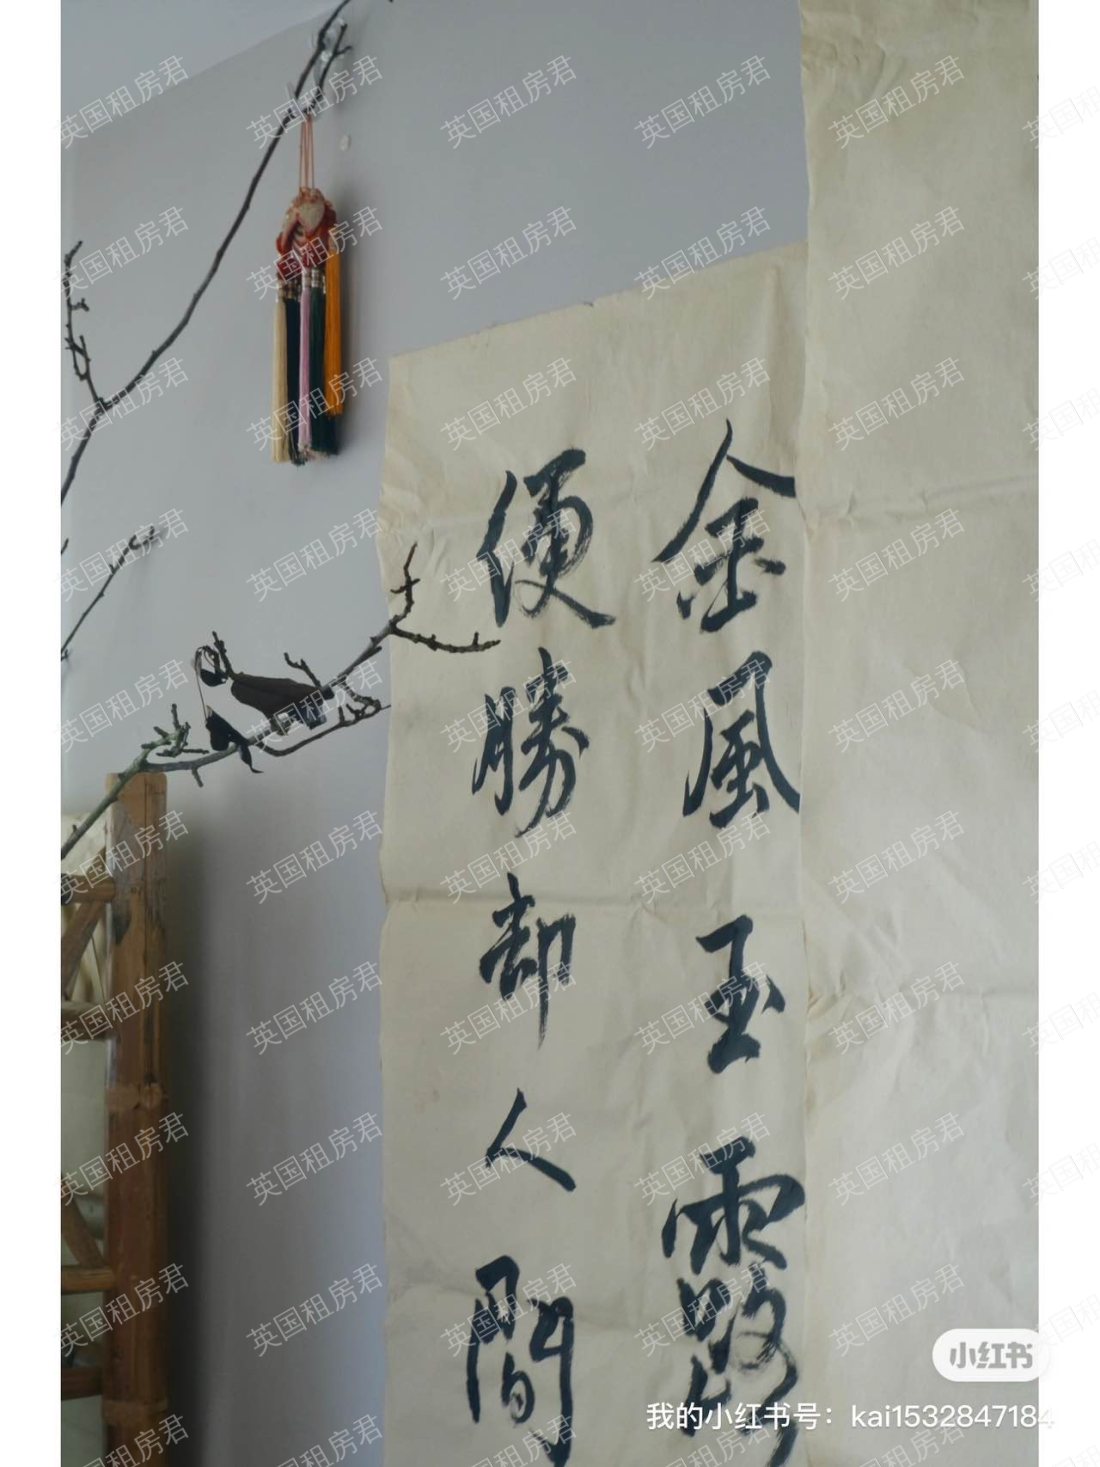 金風玉露
便勝卻人間
小红书
我的小红书号：kai1532847184
英国租房君